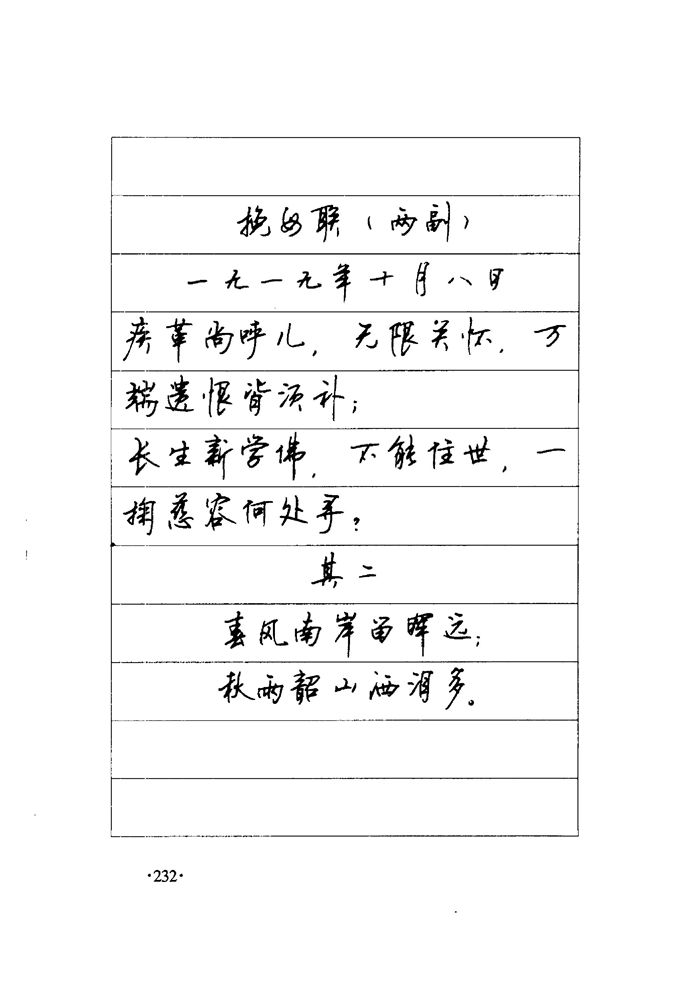 挽母联（两副）
一九一九年十月八日
疾革尚呼儿，无限关怀，万
端遗恨皆须补；
长生新学佛，不能住世，一
掬慈容何处寻？
其二
春风南岸留晖远；
秋雨韶山洒泪多。
·232·